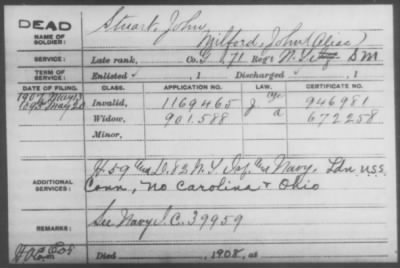 DEAD
NAME OF SOLDIER: Stuart, John
Milford, John (Alias)
SERVICE: Late rank, Co. G. , 71 Reg't N.Y. S M
TERM OF SERVICE: Enlisted , 1 Discharged , 1
DATE OF FILING. CLASS. APPLICATION NO. LAW. CERTIFICATE NO.
1907 May 13 Invalid, 1169465 946981
May 20 Widow, 901.588 672258
Minor,
ADDITIONAL SERVICES: D. 82 N.Y. Inf. Navy. U.S.S.
Conn, No Carolina & Ohio
REMARKS: See Navy I.C. 39959
Died , 1908, at